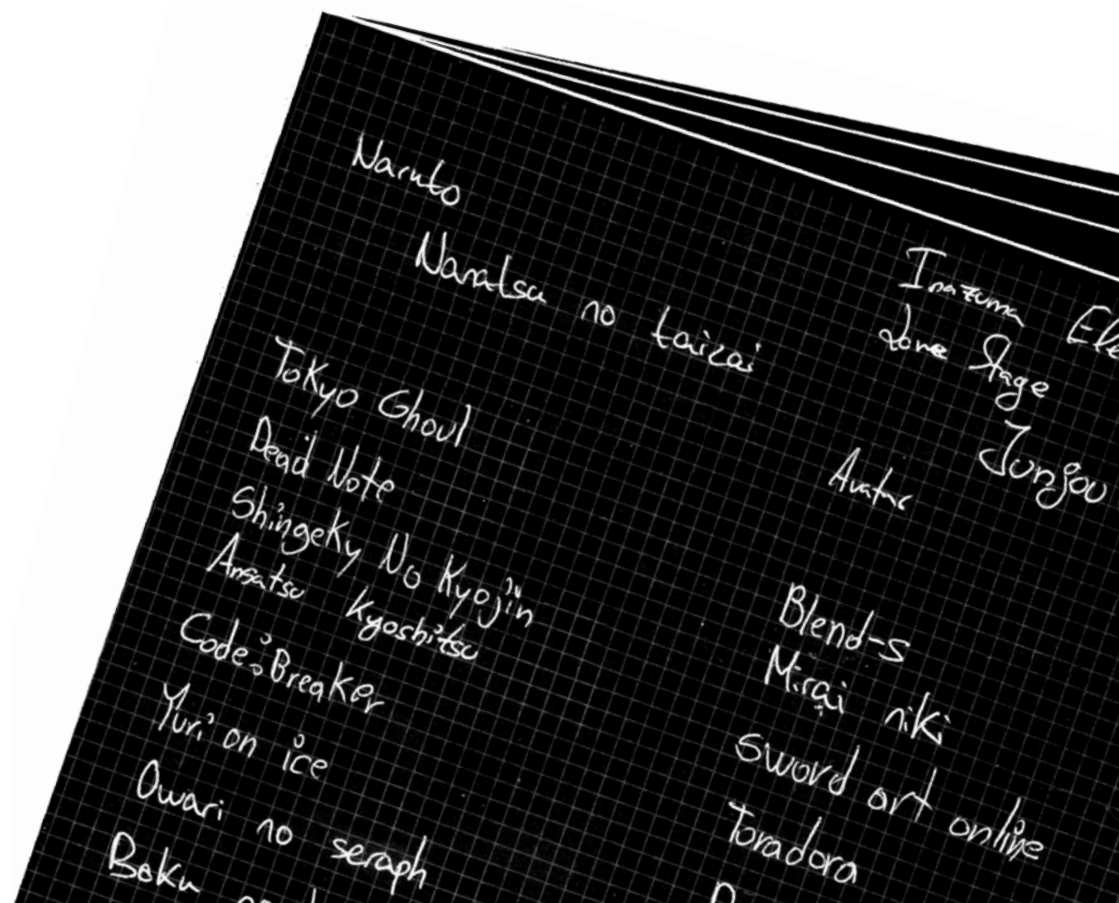 Naruto
Nanatsu no taizai
Tokyo Ghoul
Dead Note
Shingeky No Kyojin
Ansatsu Kyoshitsu
Code:Breaker
Yuri on ice
Owari no seraph
Boku
Inazuma
Love Stage
Junjou
Avatar
Blend-s
Mirai niki
sword art online
Toradora